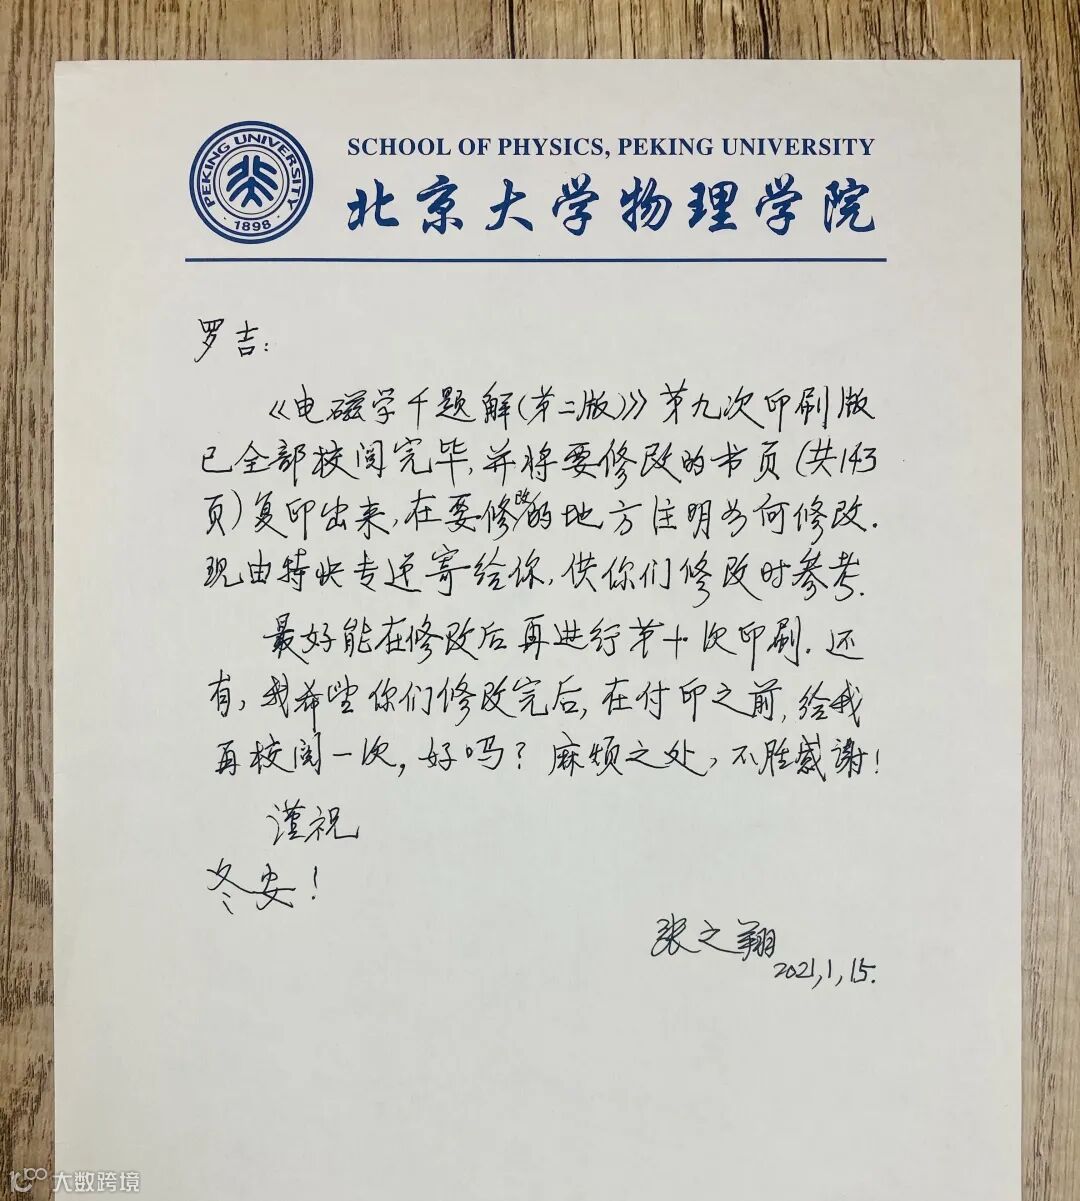 SCHOOL OF PHYSICS, PEKING UNIVERSITY
北京大学物理学院
PEKING UNIVERSITY
1898
罗吉:
《电磁学千题解(第二版)》第九次印刷版
已全部校阅完毕,并将要修改的书页(共143
页)复印出来,在要修改的地方注明为何修改.
现由特快专递寄给你,供你们修改时参考.
最好能在修改后再进行第十次印刷.还
有,我希望你们修改完后,在付印之前,给我
再校阅一次,好吗?麻烦之处,不胜感谢!
谨祝
冬安!
张之翔
2021,1,15.
大数跨境